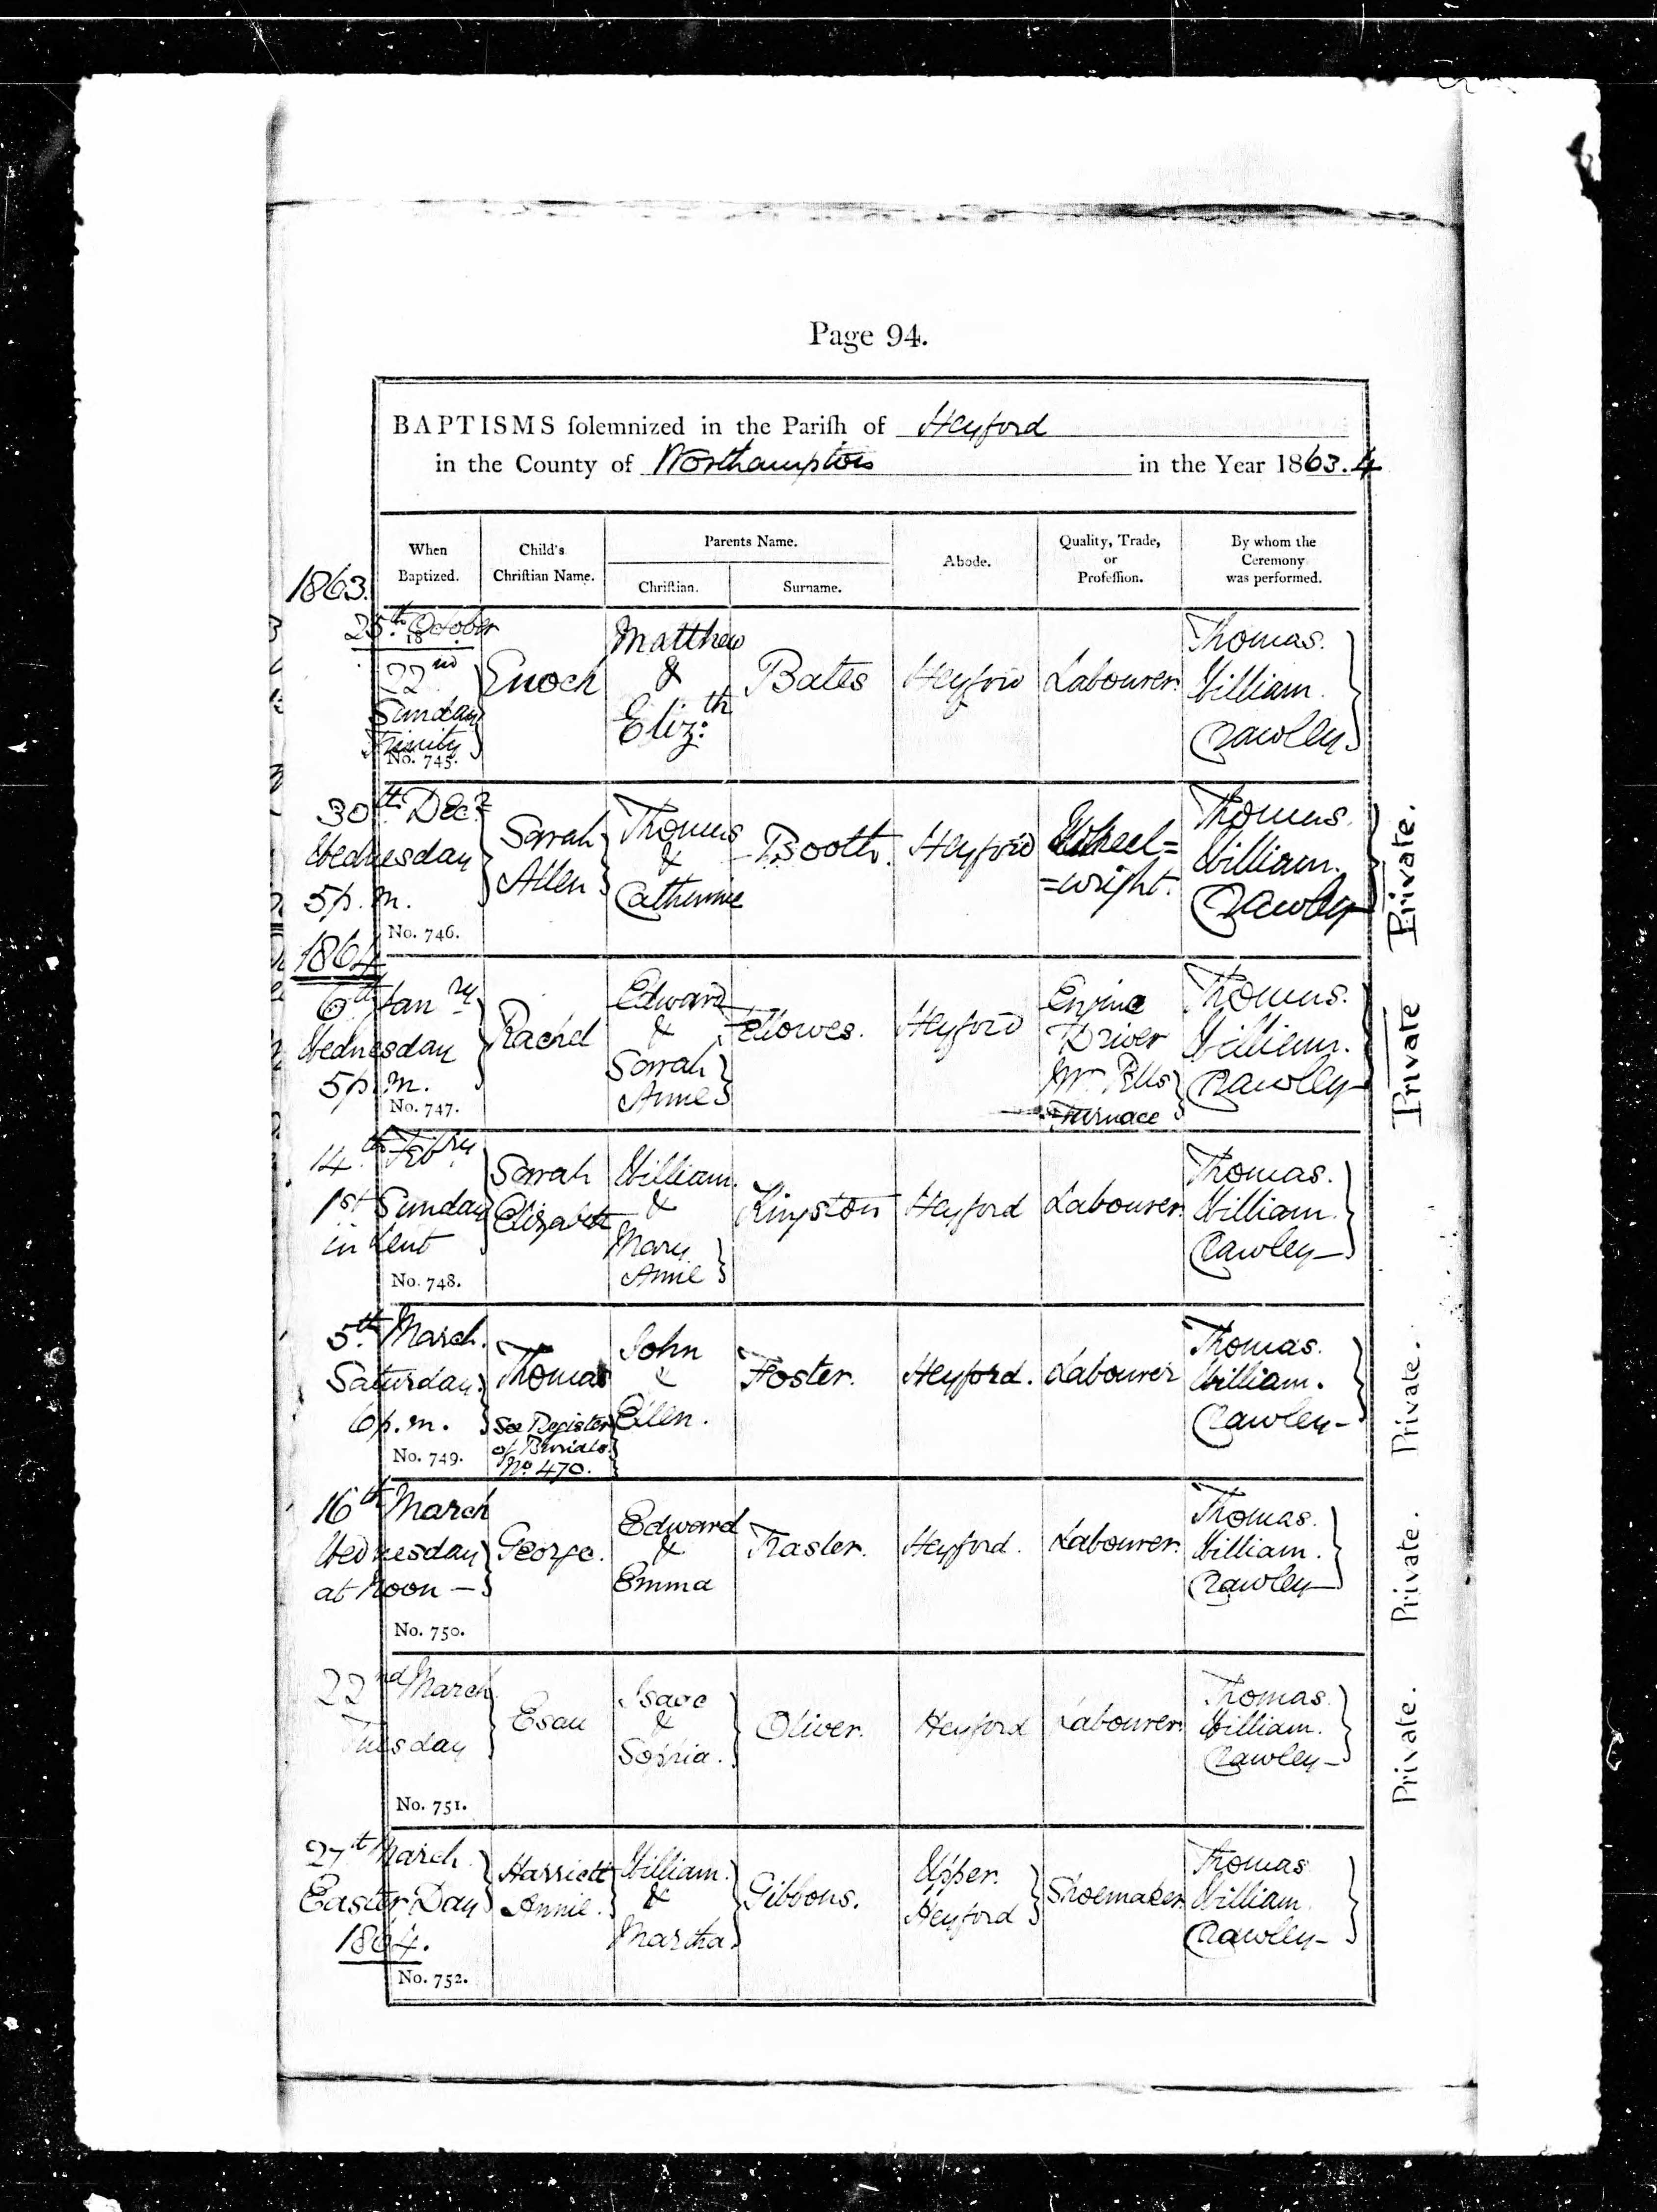 Page 94.
BAPTISMS solemnized in the Parish of Heyford
in the County of Northampton in the Year 1863.4
When Baptized.
Child's Christian Name.
Parents Name.
Christian.
Surname.
Abode.
Quality, Trade, or Profession.
By whom the Ceremony was performed.
1863.
25th October
18
22nd
Sunday
Trinity
No. 745.
Enoch
Matthew
&
Eliz:th
Bates
Heyford
Labourer.
Thomas.
William.
Crawley.
30th Decr
Wednesday
5 p.m.
No. 746.
Sarah
Allen
Thomas
&
Catherine
Booth.
Heyford
Wheel=
=wright.
Thomas.
William.
Crawley
Private.
1864
6th Janry
Wednesday
5 p.m.
No. 747.
Rachel
Edward
&
Sarah
Anne
Fellowes.
Heyford
Engine
Driver
Mr Plls
Furnace
Thomas.
William.
Crawley
Private
14th Febry
1st Sunday
in Lent
No. 748.
Sarah
Elizabeth
William.
&
Mary
Anne
Kingston
Heyford
Labourer.
Thomas.
William.
Crawley
5th March.
Saturday
6 p.m.
No. 749.
Thomas
See Register
of Burials.
No 470.
John
&
Ellen.
Foster.
Heyford.
Labourer
Thomas.
William.
Crawley
Private.
16th March
Wednesday
at noon
No. 750.
George.
Edward
&
Emma
Fraster.
Heyford.
Labourer.
Thomas.
William.
Crawley
Private.
22nd March
Tuesday
No. 751.
Esau
Isaac
&
Sophia.
Oliver.
Heyford
Labourer.
Thomas.
William.
Crawley
Private.
27th March
Easter Day
1864.
No. 752.
Harriett
Annie.
William.
&
Martha.
Gibbons.
Upper.
Heyford
Shoemaker.
Thomas
William.
Crawley